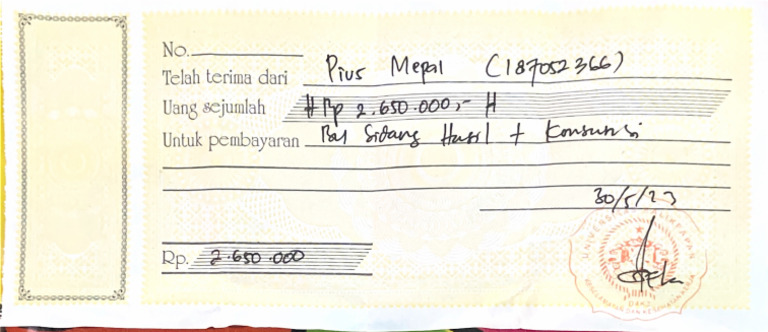 No.
Telah terima dari Pius Mepal (187052366)
Uang sejumlah # Rp 2.650.000,- #
Untuk pembayaran Bay Sidang Hasil + Konsumsi
30/5/23
Rp. 2.650.000